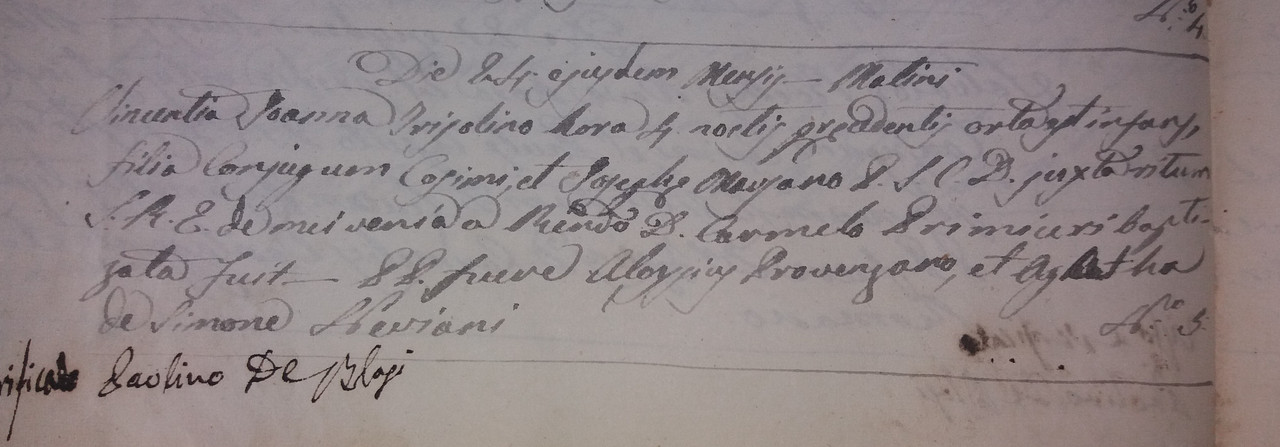 N.ro 4.
Die 24. ejusdem Mensis — Matini
Vincentia Joanna Frisolino hora 4 noctis precedentis orta est infans,
filia Conjugum Cosimi, et Josephe Marzano P. S. C. D. juxta ritum
S. R. E. de mei venia a Rendo D. Carmelo Primiceri bapti-
zata fuit — PP. fuere Aloysius Provenzano, et Agatha
de Simone Neviani
N.ro 5.
Paolino De Blasi